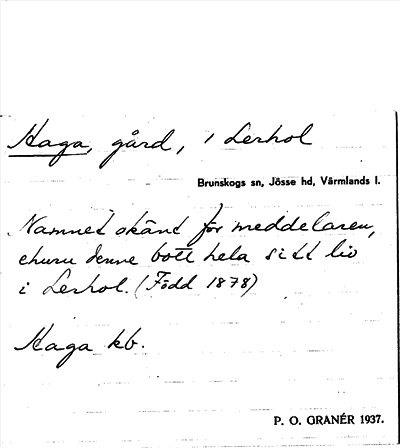 Haga, gård, i Lerhol
Brunskogs sn, Jösse hd, Värmlands l.
Namnet okänt för meddelaren,
ehuru denne bott hela sitt liv
i Lerhol. (Född 1878)
Haga kb.
P. O. GRANÉR 1937.